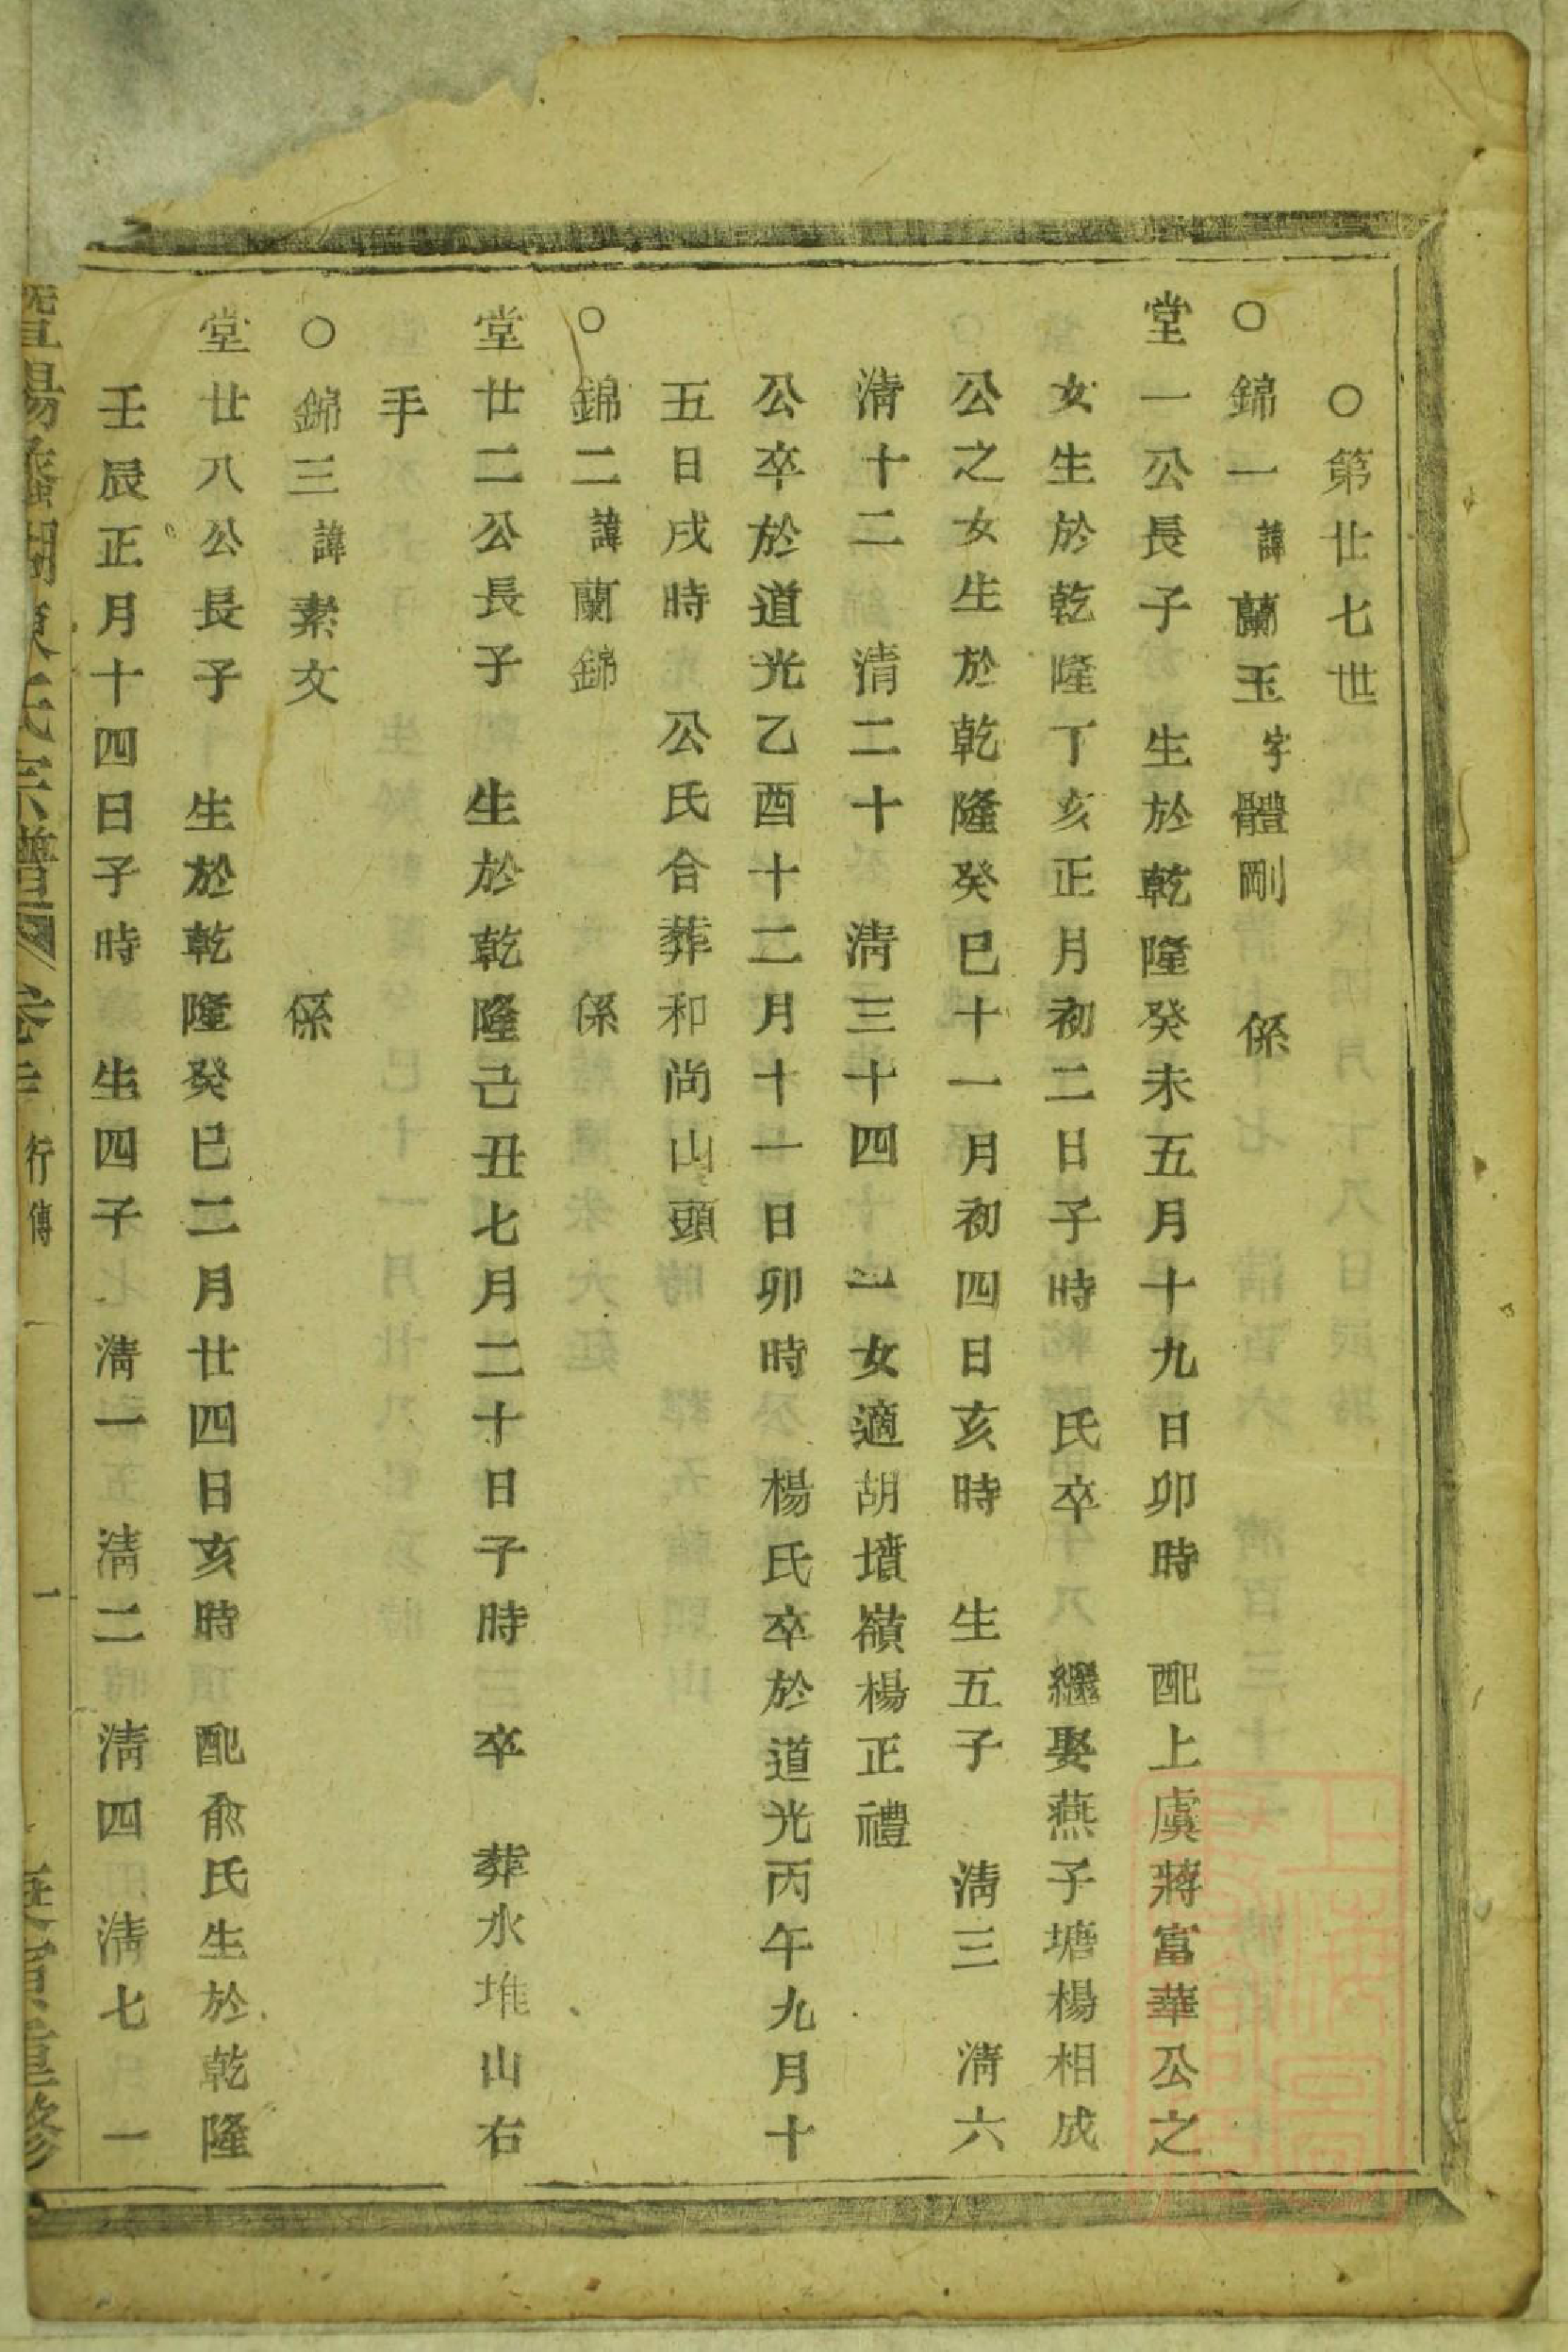 ○第廿七世
○錦一諱蘭玉字體剛 係
堂一公長子 生於乾隆癸未五月十九日卯時 配上虞蔣富華公之
女生於乾隆丁亥正月初二日子時 氏卒 繼娶燕子塘楊相成
公之女生於乾隆癸巳十一月初四日亥時 生五子 清三 清六
清十二 清二十 清三十四 一女適胡墳嶺楊正禮
公卒於道光乙酉十二月十一日卯時 楊氏卒於道光丙午九月十
五日戌時 公氏合葬和尚山頭
○錦二諱蘭錦 係
堂廿二公長子 生於乾隆己丑七月二十日子時 卒 葬水堆山右
手
○錦三諱素文 係
堂廿八公長子 生於乾隆癸巳二月廿四日亥時 配俞氏生於乾隆
壬辰正月十四日子時 生四子 清一 清二 清四 清七 一
暨陽 湖陳氏宗譜 卷 行傳 一 重修
上海圖書館藏